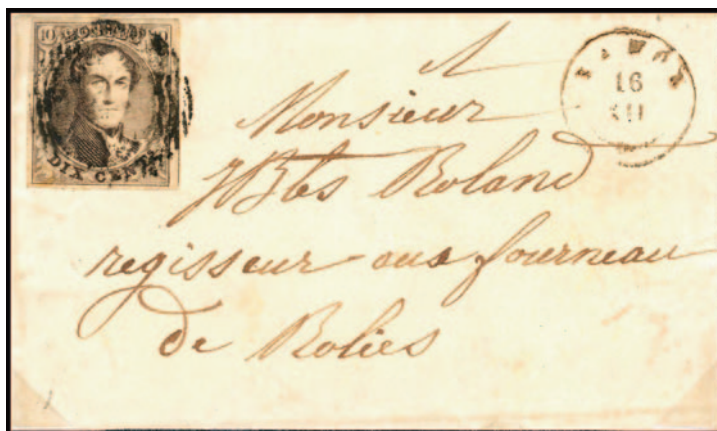 10 10
DIX CENTS
16
A
Monsieur
JBts Roland
regisseur aux fourneau
de Rolies